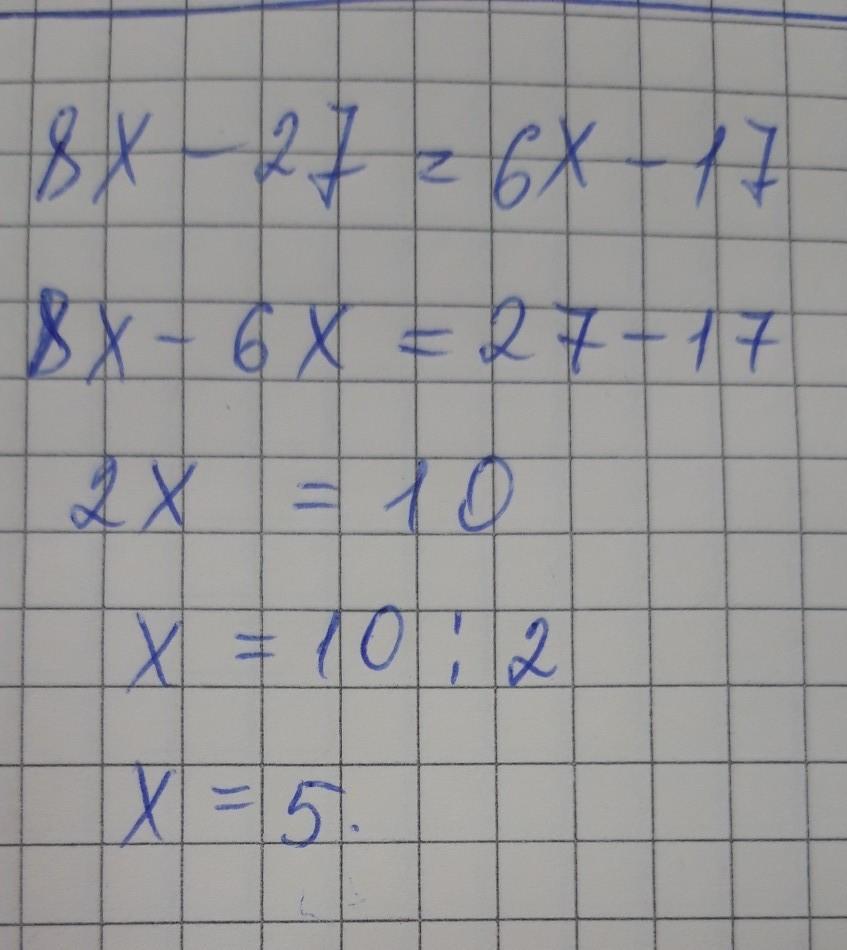 8x - 27 = 6x - 17
8x - 6x = 27 - 17
2x = 10
x = 10 : 2
x = 5.